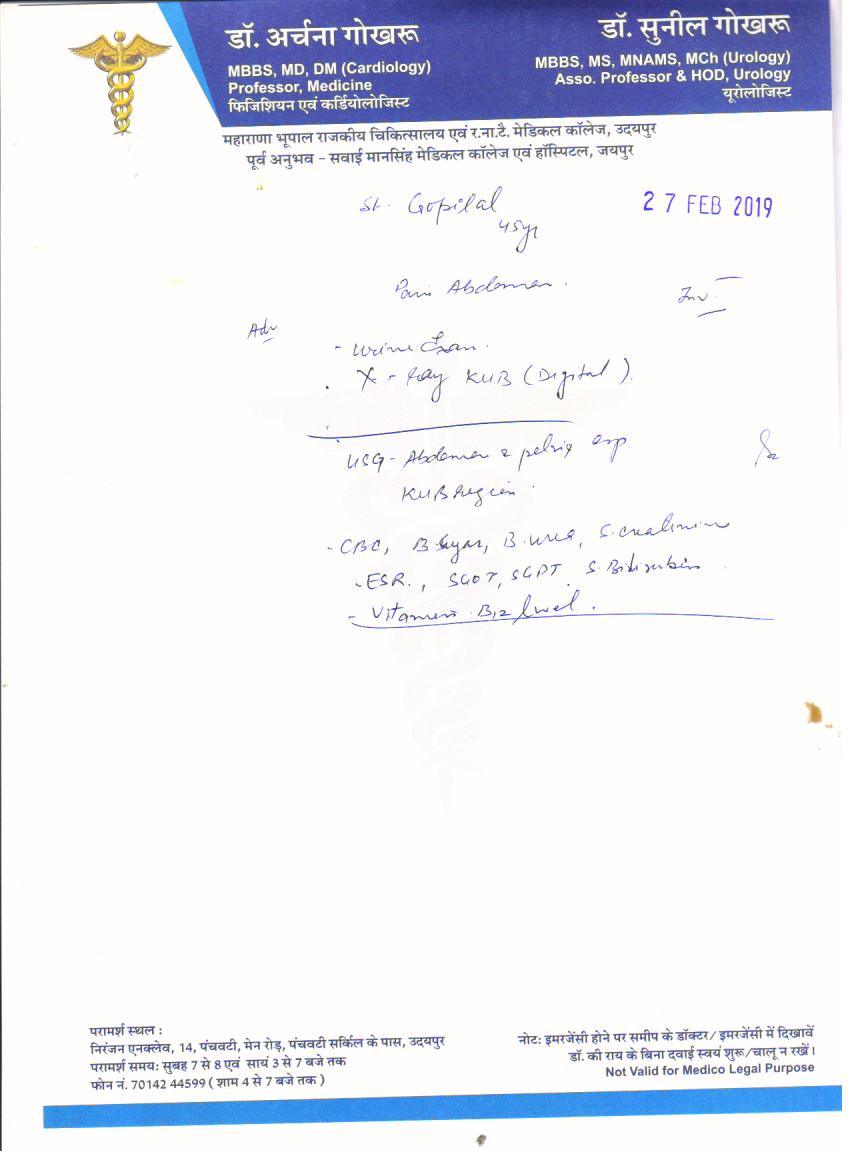 डॉ. अर्चना गोखरू
MBBS, MD, DM (Cardiology)
Professor, Medicine
फिजिशियन एवं कर्डियोलोजिस्ट
डॉ. सुनील गोखरू
MBBS, MS, MNAMS, MCh (Urology)
Asso. Professor & HOD, Urology
यूरोलोजिस्ट
महाराणा भूपाल राजकीय चिकित्सालय एवं र.ना.टै. मेडिकल कॉलेज, उदयपुर
पूर्व अनुभव - सवाई मानसिंह मेडिकल कॉलेज एवं हॉस्पिटल, जयपुर
Gopilal
27 FEB 2019
45yr
Pain Abdomen.
Inv.
Adv
- Urine Exam.
. X-Ray KUB (Digital).
USG - Abdomen & pelvis esp
KUB Region.
- CBC, B. Sugar, B. urea, S. creatinine
- ESR., SGOT, SGPT. S. Bilirubin
- Vitamin B12 level.
परामर्श स्थल :
निरंजन एनक्लेव, 14, पंचवटी, मेन रोड़, पंचवटी सर्किल के पास, उदयपुर
परामर्श समय: सुबह 7 से 8 एवं सायं 3 से 7 बजे तक
फोन नं. 70142 44599 ( शाम 4 से 7 बजे तक )
नोट: इमरजेंसी होने पर समीप के डॉक्टर/ इमरजेंसी में दिखावें
डॉ. की राय के बिना दवाई स्वयं शुरू/चालू न रखें।
Not Valid for Medico Legal Purpose